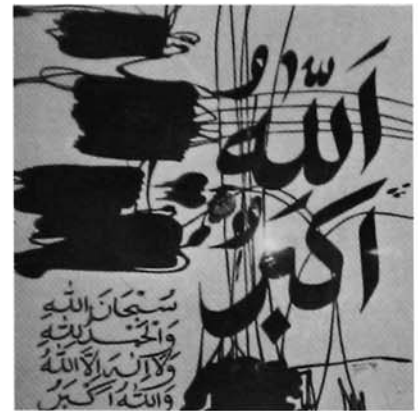 اَللّٰهُ
اَكْبَرُ
سُبْحَانَ اللّٰهِ
وَالْحَمْدُ لِلّٰهِ
وَلَا اِلٰهَ اِلَّا اللّٰهُ
وَاللّٰهُ اَكْبَرُ